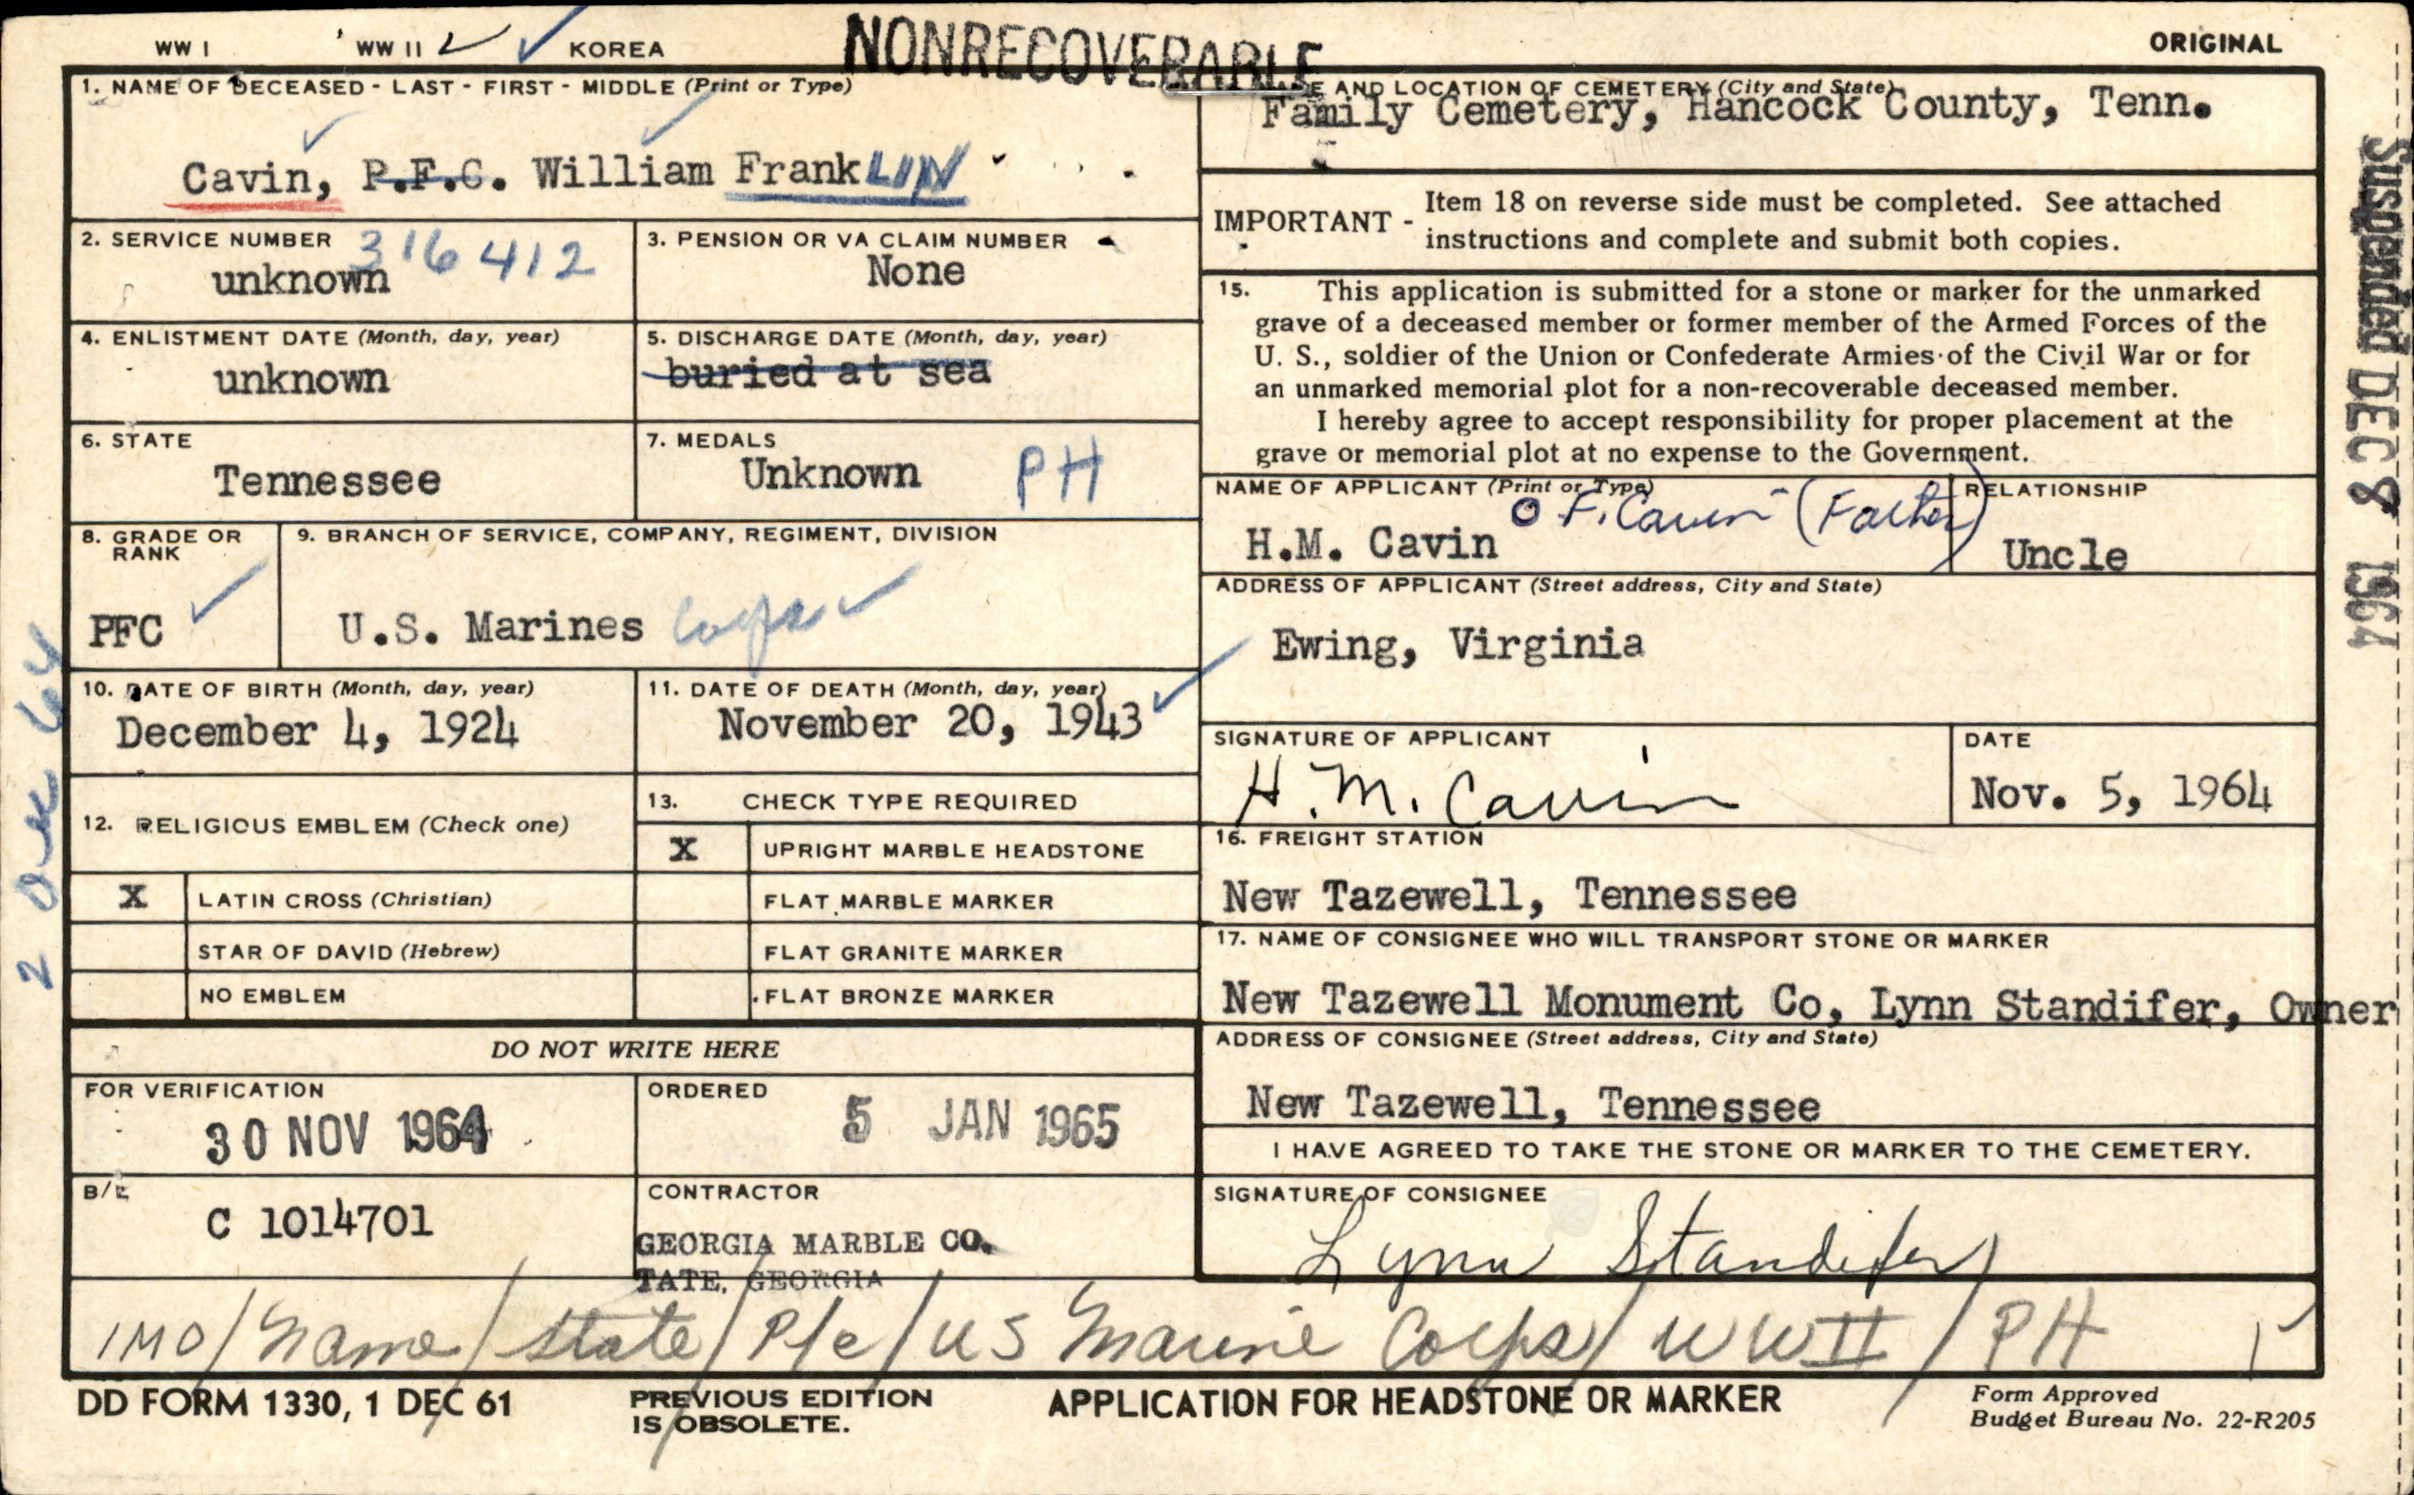 WW I WW II ✓ ✓ KOREA NONRECOVERABLE ORIGINAL
1. NAME OF DECEASED - LAST - FIRST - MIDDLE (Print or Type)
Cavin, P.F.C. William FrankLIN
2. SERVICE NUMBER
316412
unknown
3. PENSION OR VA CLAIM NUMBER
None
4. ENLISTMENT DATE (Month, day, year)
unknown
5. DISCHARGE DATE (Month, day, year)
buried at sea
6. STATE
Tennessee
7. MEDALS
Unknown PH
8. GRADE OR
RANK
PFC
9. BRANCH OF SERVICE, COMPANY, REGIMENT, DIVISION
U.S. Marines Corps
10. DATE OF BIRTH (Month, day, year)
December 4, 1924
11. DATE OF DEATH (Month, day, year)
November 20, 1943
12. RELIGIOUS EMBLEM (Check one)
X LATIN CROSS (Christian)
STAR OF DAVID (Hebrew)
NO EMBLEM
13. CHECK TYPE REQUIRED
X UPRIGHT MARBLE HEADSTONE
FLAT MARBLE MARKER
FLAT GRANITE MARKER
FLAT BRONZE MARKER
DO NOT WRITE HERE
FOR VERIFICATION
30 NOV 1964
ORDERED
5 JAN 1965
B/L
C 1014701
CONTRACTOR
GEORGIA MARBLE CO.
TATE, GEORGIA
E AND LOCATION OF CEMETERY (City and State)
Family Cemetery, Hancock County, Tenn.
IMPORTANT - Item 18 on reverse side must be completed. See attached
instructions and complete and submit both copies.
15. This application is submitted for a stone or marker for the unmarked
grave of a deceased member or former member of the Armed Forces of the
U. S., soldier of the Union or Confederate Armies of the Civil War or for
an unmarked memorial plot for a non-recoverable deceased member.
I hereby agree to accept responsibility for proper placement at the
grave or memorial plot at no expense to the Government.
NAME OF APPLICANT (Print or Type)
O F. Cavin - (Father)
H.M. Cavin
RELATIONSHIP
Uncle
ADDRESS OF APPLICANT (Street address, City and State)
Ewing, Virginia
SIGNATURE OF APPLICANT
H. M. Cavin
DATE
Nov. 5, 1964
16. FREIGHT STATION
New Tazewell, Tennessee
17. NAME OF CONSIGNEE WHO WILL TRANSPORT STONE OR MARKER
New Tazewell Monument Co, Lynn Standifer, Owner
ADDRESS OF CONSIGNEE (Street address, City and State)
New Tazewell, Tennessee
I HAVE AGREED TO TAKE THE STONE OR MARKER TO THE CEMETERY.
SIGNATURE OF CONSIGNEE
Lynn Standifer
IMO/Name/State/Pfc/US Marine Corps/WWII/PH
DD FORM 1330, 1 DEC 61
PREVIOUS EDITION
IS OBSOLETE.
APPLICATION FOR HEADSTONE OR MARKER
Form Approved
Budget Bureau No. 22-R205
2 Dec 64
Suspended DEC 8 1964